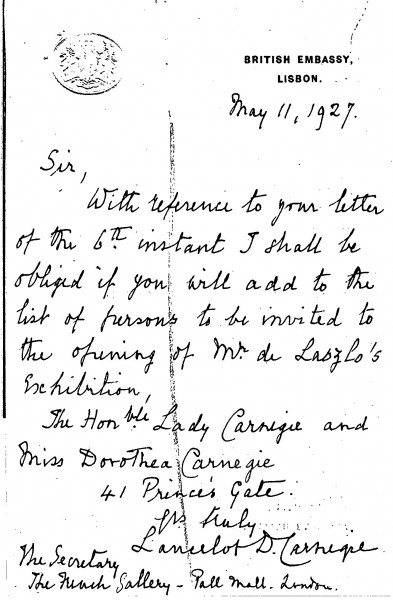 BRITISH EMBASSY,
LISBON.
May 11, 1927.
Sir,
With reference to your letter
of the 6th instant I shall be
obliged if you will add to the
list of persons to be invited to
the opening of Mr de Laszlo's
Exhibition,
The Honble Lady Carnegie and
Miss Dorothea Carnegie
41 Prince's Gate.
Yrs truly
Lancelot D. Carnegie.
The Secretary
The French Gallery – Pall Mall. London.